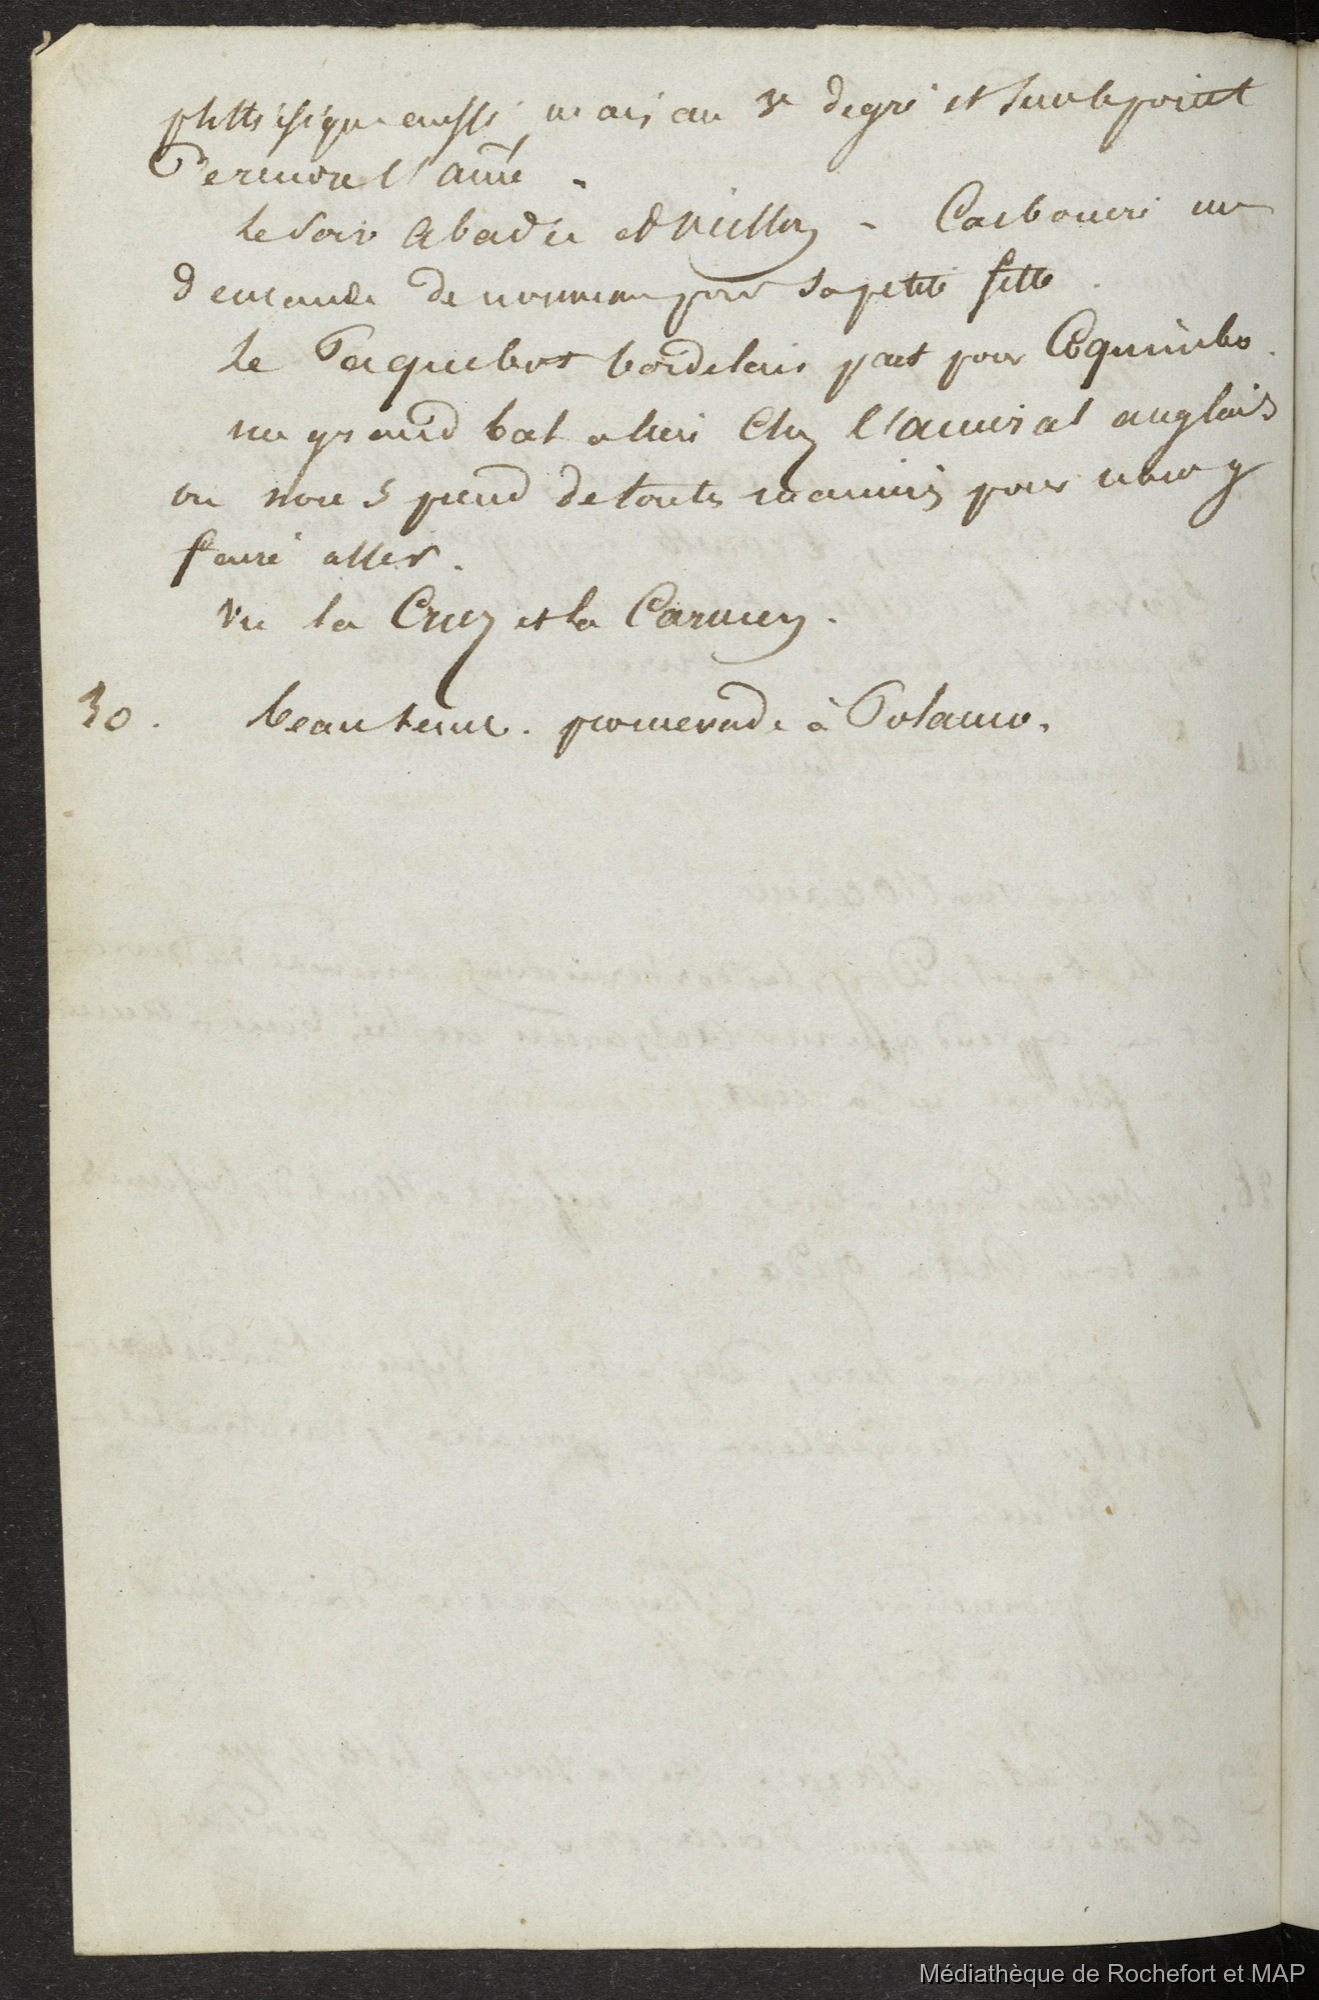 phthisique aussi, mais au 3e degré et sur le point
de rendre l'ame.
le soir Abadie et - Carboneri me
demande de nouveau pour sa petite fille.
Le Paquebot bordelais part pour Coquimbo.
un grand bal a lieu chez l'amiral anglais
on nous prend de toutes manieres pour nous y
faire aller.
Vu la Cruz et la Carmen.
30. beau tems. promenade à Polanco.
Médiathèque de Rochefort et MAP